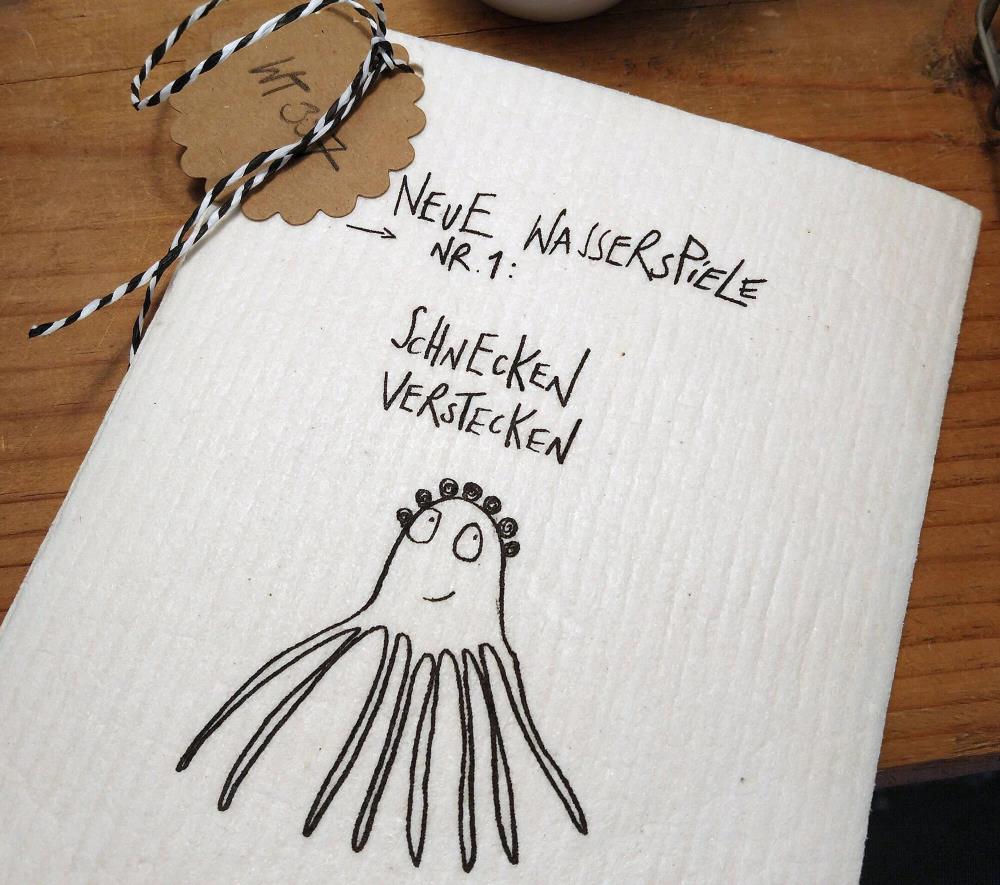 WT 337
NEUE WASSERSPIELE
→ NR. 1:
SCHNECKEN
VERSTECKEN